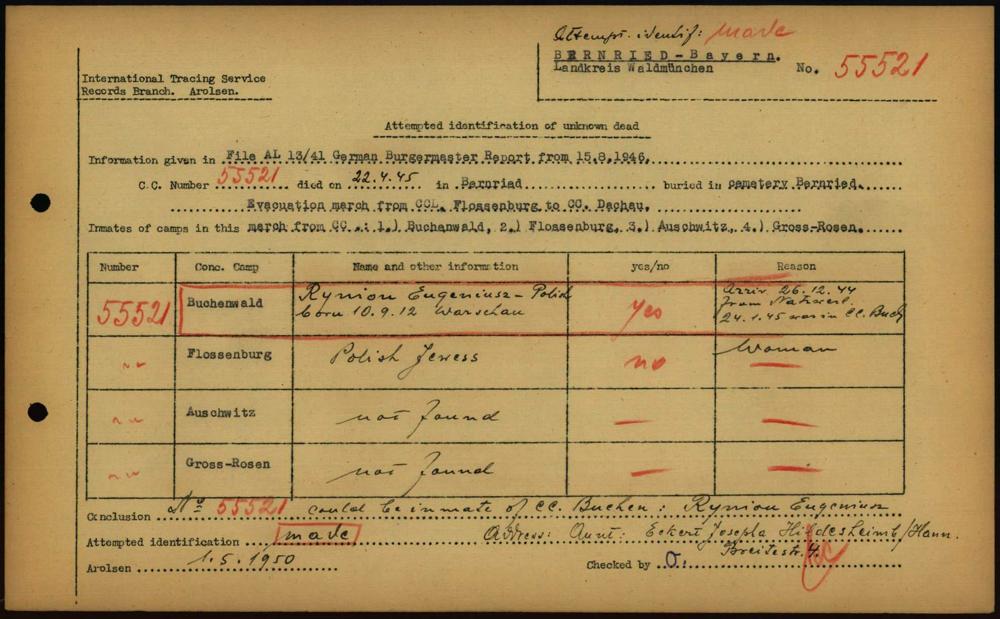 Attempt. identif: made
BERNRIED-Bayern.
Landkreis Waldmünchen
No. 55521
International Tracing Service
Records Branch. Arolsen.
Attempted identification of unknown dead
Information given in File AL 13/41 German Burgermaster Report from 15.8.1946.
C.C. Number 55521 died on 22.4.45 in Bernried buried in cemetery Bernried.
Evacuation march from CCL. Flossenburg to CC. Dachau.
Inmates of camps in this march from CC.: 1.) Buchenwald, 2.) Flossenburg, 3.) Auschwitz, 4.) Gross-Rosen.
Number Conc. Camp Name and other information yes/no Reason
55521 Buchenwald Rynion Eugeniusz - Polish yes Arriv. 26.12.44
born 10.9.12 Warschau from
24.1.45 was in CC. Buch
Flossenburg Polish Jewess no Woman
Auschwitz not found —
Gross-Rosen not found —
Conclusion No 55521 could be inmate of CC. Buchen: Rynion Eugeniusz
Attempted identification made Address: Aunt: Eckert Josepha Hildesheim b/Hann.
Breitestr. 4.
Arolsen 1.5.1950 Checked by